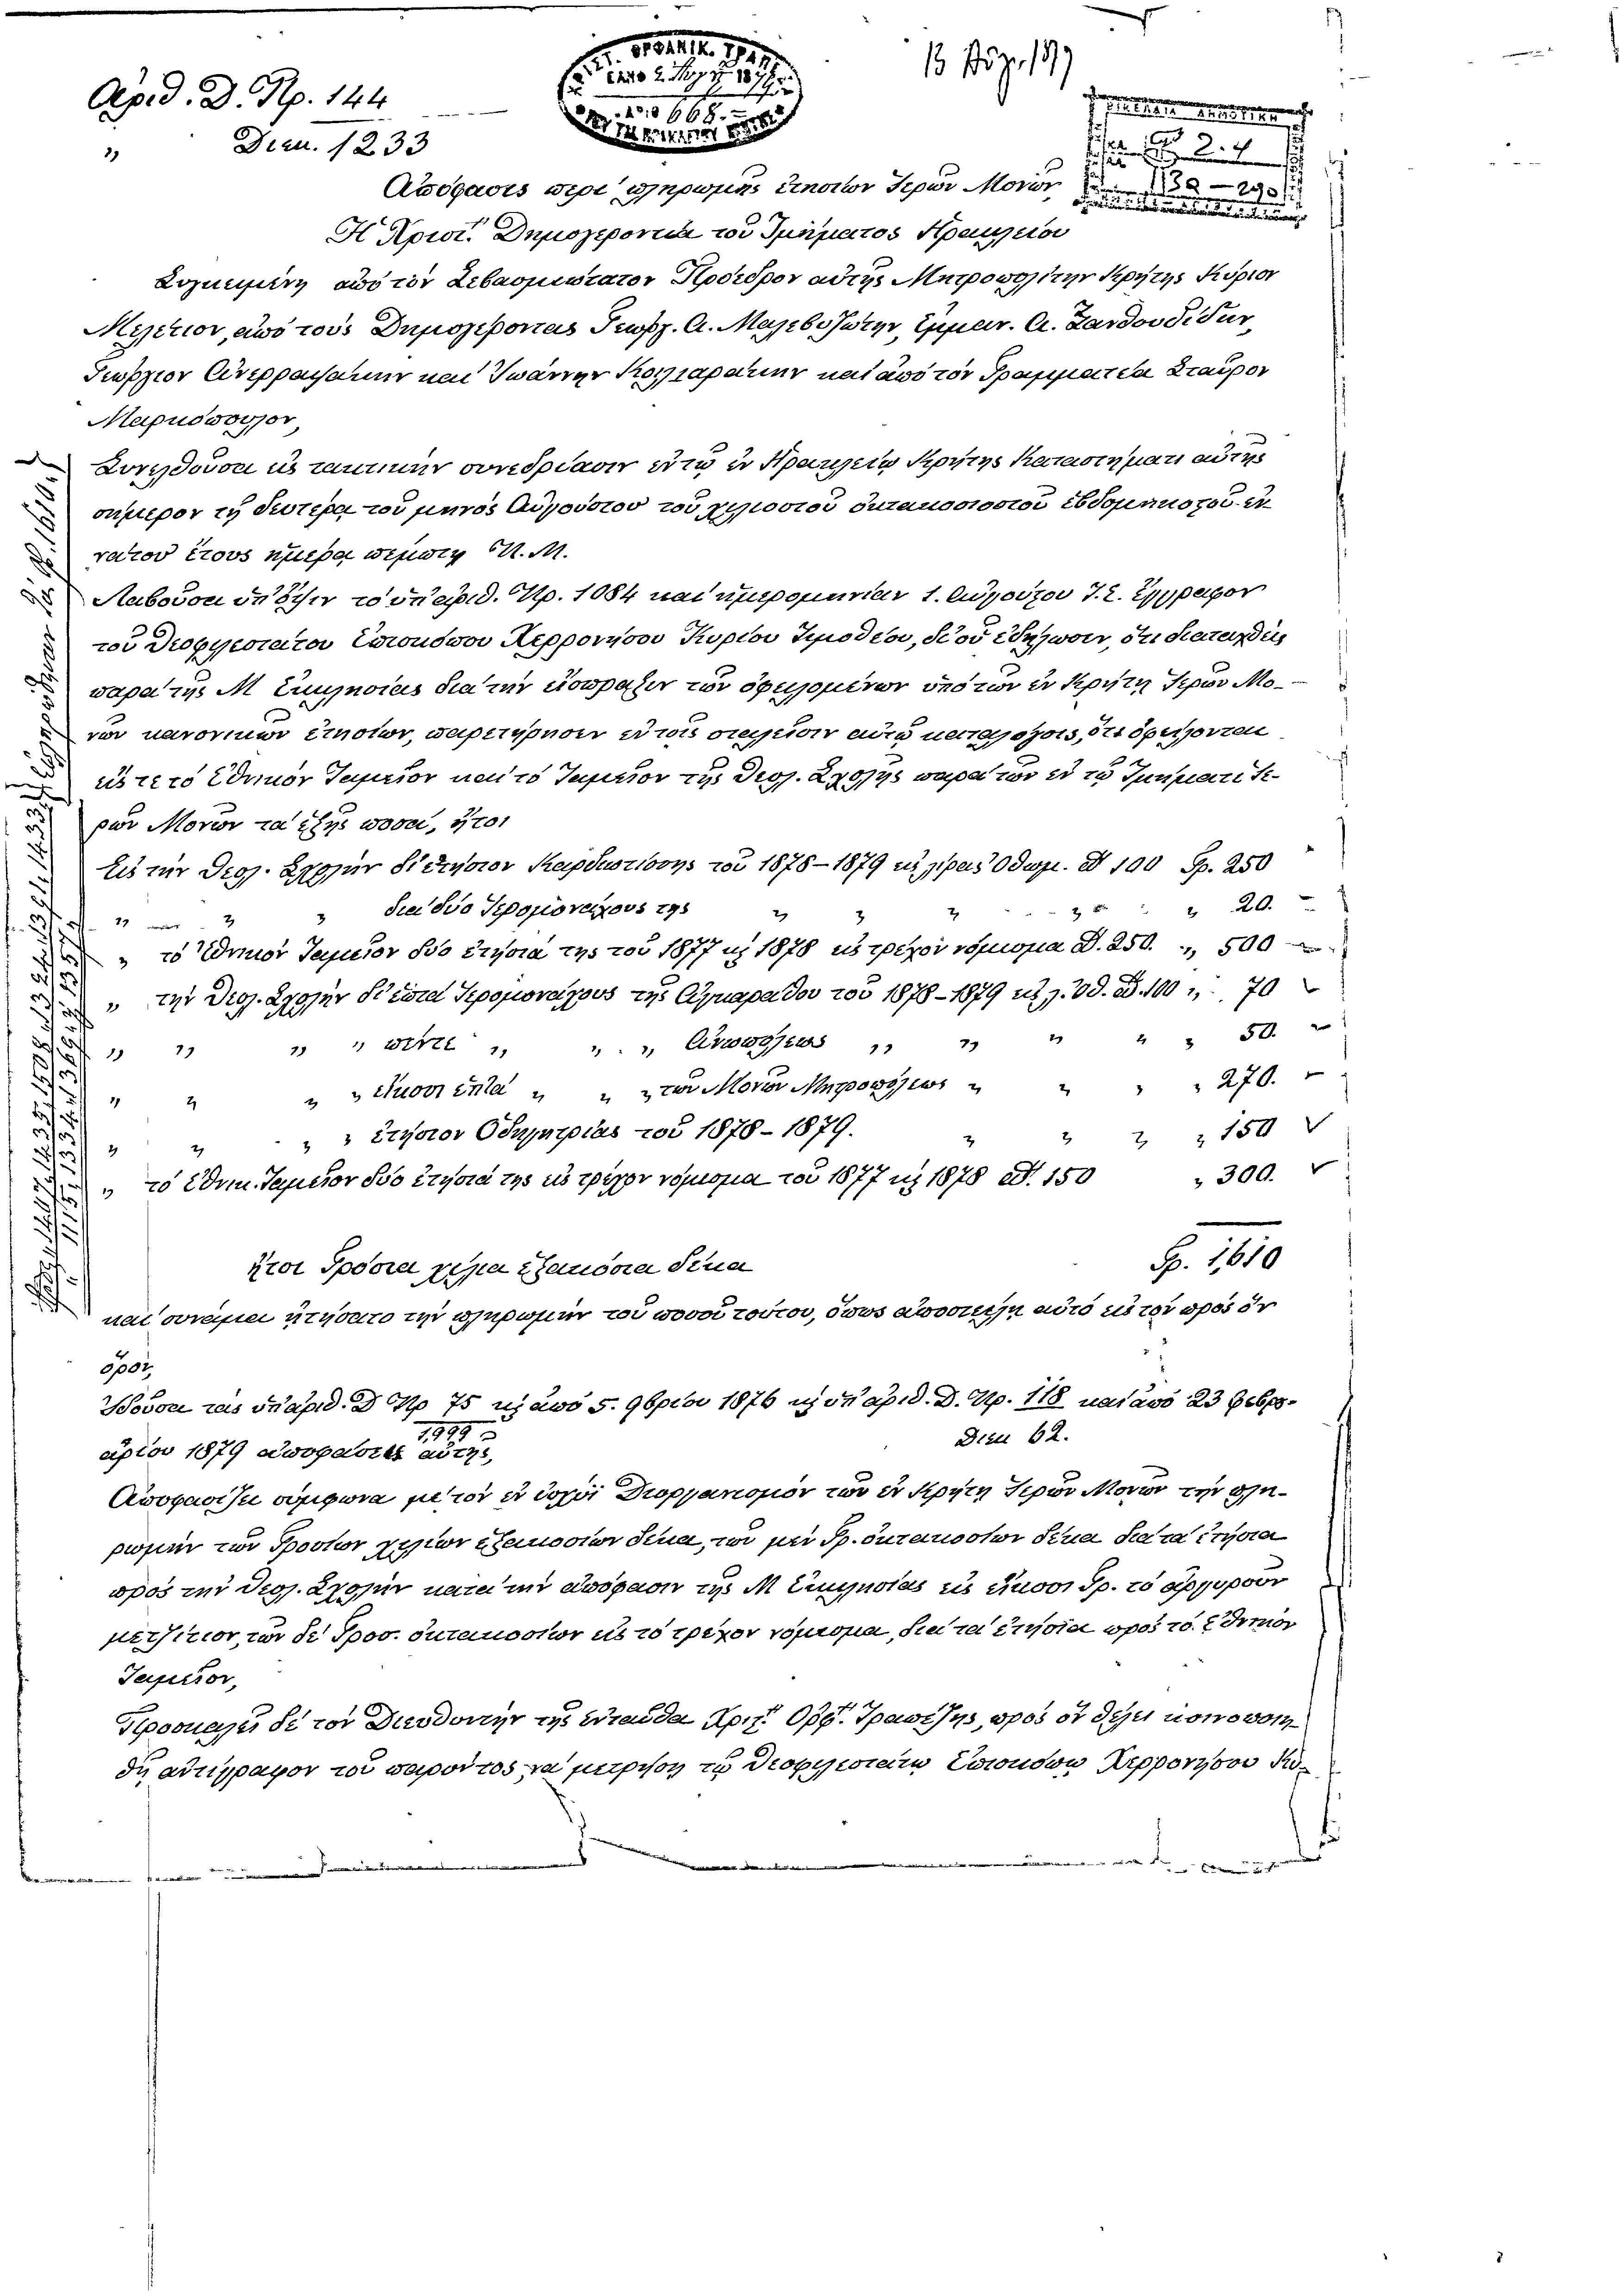 Αριθ. Δ. Πρ. 144
„ Διεκ. 1233
13 Αὐγ. 1879
668
Απόφασις περί πληρωμής ετησίων Ιερών Μονών,
Η Χριστ. Δημογεροντία του Τμήματος Ηρακλείου
Συγκειμένη από τον Σεβασμιώτατον Πρόεδρον αυτής Μητροπολίτην Κρήτης Κύριον
Μελέτιον, από τους Δημογέροντας Γεωργ. Α. Μαλεβυζώτην, Εμμαν. Α. Ξανθουδίδην,
Γεώργιον Ανερραψάκην και Ιωάννην Κολλαράκην και από τον Γραμματέα Σταύρον
Μαρκόπουλον,
Συνελθούσα εις τακτικήν συνεδρίασιν εν τω εν Ηρακλείω Κρήτης Καταστήματι αυτής
σήμερον τη δευτέρα του μηνός Αυγούστου του χιλιοστού οκτακοσιοστού εβδομηκοστού εν-
νάτου έτους ημέρα πέμπτη Π. Μ.
Λαβούσα υπ' όψιν το υπ' αριθ. Πρ. 1084 και ημερομηνίαν 1. Αυγούστου Τ. Ε. έγγραφον
του Θεοφιλεστάτου Επισκόπου Χερρονήσου Κυρίου Τιμοθέου, δι' ού εδήλωσεν, ότι διαταχθείς
παρά της Μ Εκκλησίας διά την είσπραξιν των οφειλομένων υπό των εν Κρήτη Ιερών Μο-
νών κανονικών ετησίων, παρετήρησεν εν τοις σταλείσιν αυτώ καταλόγοις, ότι οφείλονται
εις τε το Εθνικόν Ταμείον και το Ταμείον της Θεολ. Σχολής παρά των εν τω Τμήματι Ιε-
ρών Μονών τα εξής ποσά, ήτοι
Εις την Θεολ. Σχολήν δι' ετήσιον Καρδιωτίσσης του 1878–1879 εις λίρας Οθωμ. Δ 100 Γρ. 250
„ „ „ διά δύο Ιερομονάχους της „ „ „ „ „ 20.
„ το Εθνικόν Ταμείον δύο ετήσιά της του 1877 κ 1878 εις τρέχον νόμισμα Δ. 250. „ 500
„ την Θεολ. Σχολήν δι' επτά Ιερομονάχους της Αγκαράθου του 1878–1879 εις λ. Οθ. Δ. 100 „ 70
„ „ „ „ πέντε „ „ „ Ανωπόλεως „ „ „ „ „ 50.
„ „ „ „ είκοσι επτά „ „ „ των Μονών Μητροπόλεως „ „ „ „ 270.
„ „ „ „ ετήσιον Οδηγητρίας του 1878–1879. „ „ „ „ 150
„ το Εθνικ. Ταμείον δύο ετήσιά της εις τρέχον νόμισμα του 1877 κ 1878 Δ. 150 „ 300.
Γρ. 1,610
ήτοι Γρόσια χίλια εξακόσια δέκα
και συνάμα ητήσατο την πληρωμήν του ποσού τούτου, όπως αποστείλη αυτό εις τον προς όν
όρον,
Ιδούσα τας υπ' αριθ. Δ Πρ 75 κ από 5. 9βρίου 1876 κ υπ' αριθ. Δ. Πρ. 118 και από 23 Φεβρο-
1,999 Διεκ 62.
αρίου 1879 αποφάσεις αυτής,
Αποφασίζει σύμφωνα με τον εν ισχύι Διοργανισμόν των εν Κρήτη Ιερών Μονών την πλη-
ρωμήν των Γροσίων χιλίων εξακοσίων δέκα, των μεν Γρ. οκτακοσίων δέκα διά τα ετήσια
προς την Θεολ. Σχολήν κατά την απόφασιν της Μ Εκκλησίας εις είκοσι Γρ. το αργυρούν
μετζίτιον, των δε Γροσ. οκτακοσίων εις το τρέχον νόμισμα, διά τα ετήσια προς το Εθνικόν
Ταμείον,
Προσκαλεί δε τον Διευθυντήν της ενταύθα Χριστ. Ορφ. Τραπέζης, προς όν θέλει κοινοποιη-
θή αντίγραφον του παρόντος, να μετρήση τω Θεοφιλεστάτω Επισκόπω Χερρονήσου Κυ-